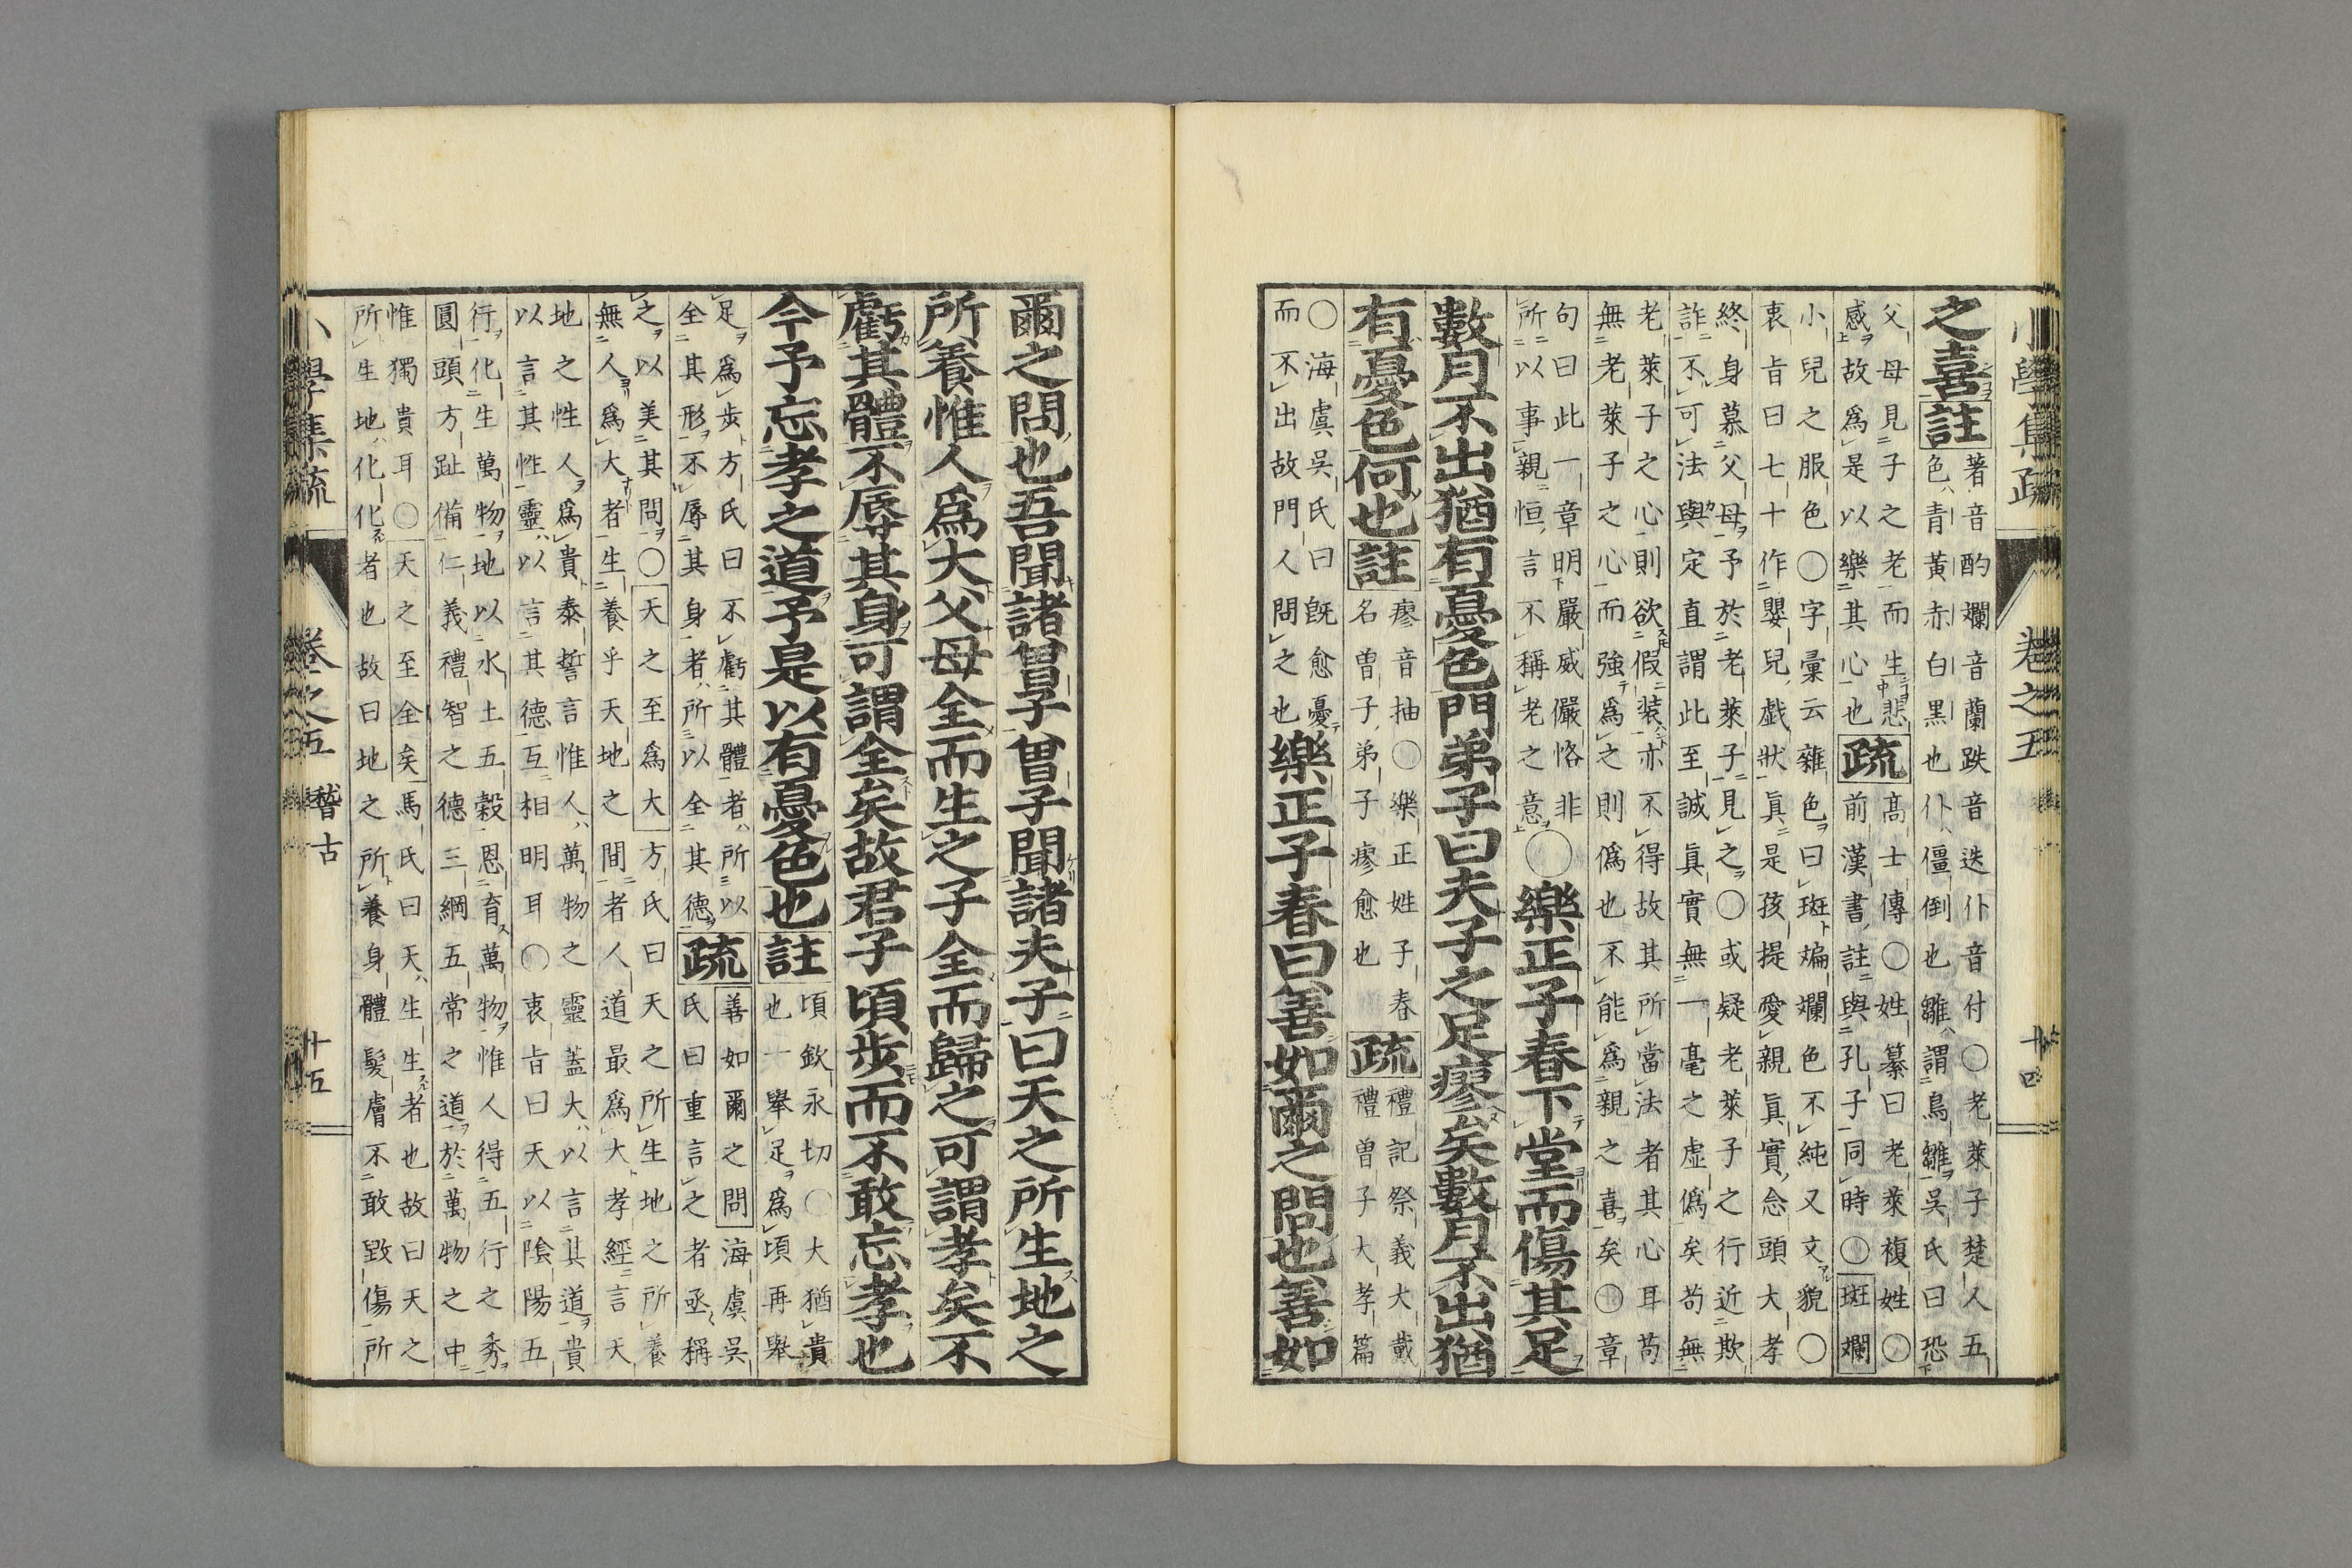 小學集疏 卷之五 十四
之喜註
著音酌斕音蘭跌音迭仆音付〇老萊子楚人五
色青黃赤白黑也仆僵倒也雛謂鳥雛吳氏曰恐
父母見子之老而生悲
感故爲是以樂其心也
疏
高士傳〇姓纂曰老萊複姓〇
前漢書註與孔子同時〇斑斕
小兒之服色〇字彙云雜色曰斑斒斕色不純又文貌〇
衷旨曰七十作嬰兒戯狀眞是孩提愛親眞實念頭大孝
終身慕父母予於老萊子見之〇或疑老萊子之行近欺
詐不可法與定直謂此至誠眞實無一毫之虛僞矣苟無
老萊子之心則欲假装亦不得故其所當法者其心耳苟
無老萊子之心而強爲之則僞也不能爲親之喜矣〇章
句曰此一章明嚴威儼恪非
所以事親恒言不稱老之意
〇樂正子春下堂而傷其足
數月不出猶有憂色門弟子曰夫子之足瘳矣數月不出猶
有憂色何也註
瘳音抽〇樂正姓子春
名曽子弟子瘳愈也
疏
禮記祭義大戴
禮曽子大孝篇
〇海虞吳氏曰旣愈憂
而不出故門人問之也
樂正子春曰善如爾之問也善如
爾之問也吾聞諸曽子曽子聞諸夫子曰天之所生地之
所養惟人爲大父母全而生之子全而歸之可謂孝矣不
虧其體不辱其身可謂全矣故君子頃步而不敢忘孝也
今予忘孝之道予是以有憂色也註
頃欽永切〇大猶貴
也一舉足爲頃再舉
足爲步方氏曰不虧其體者所以
全其形不辱其身者所以全其德
疏
善如爾之問海虞吳
氏曰重言之者亟稱
之以美其問〇天之至爲大方氏曰天之所生地之所養
無人爲大者生養乎天地之間者人道最爲大孝經言天
地之性人爲貴泰誓言惟人萬物之靈蓋大以言其道貴
以言其性靈以言其德互相明耳〇衷旨曰天以陰陽五
行化生萬物地以水土五穀恩育萬物惟人得五行之秀
圓頭方趾備仁義禮智之德三綱五常之道於萬物之中
惟獨貴耳〇天之至全矣馬氏曰天生生者也故曰天之
所生地化化者也故曰地之所養身體髮膚不敢毀傷所
小學集疏 卷之五 稽古 十五